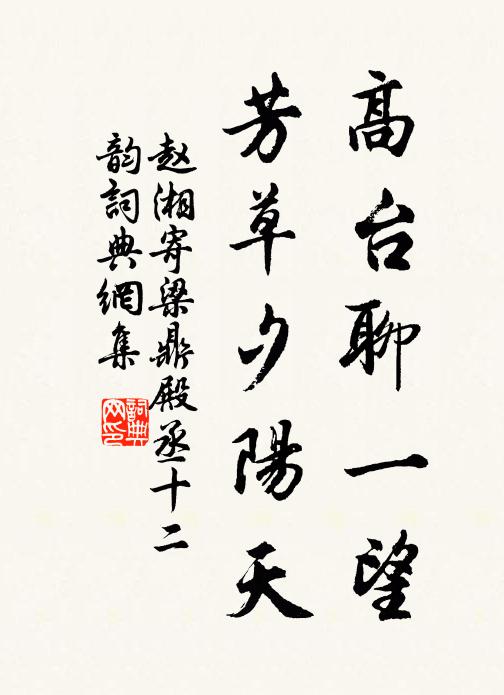 高台聊一望
芳草夕陽天
赵湘寄梁鼎殿丞十二
韵詞典網集
詞典網印